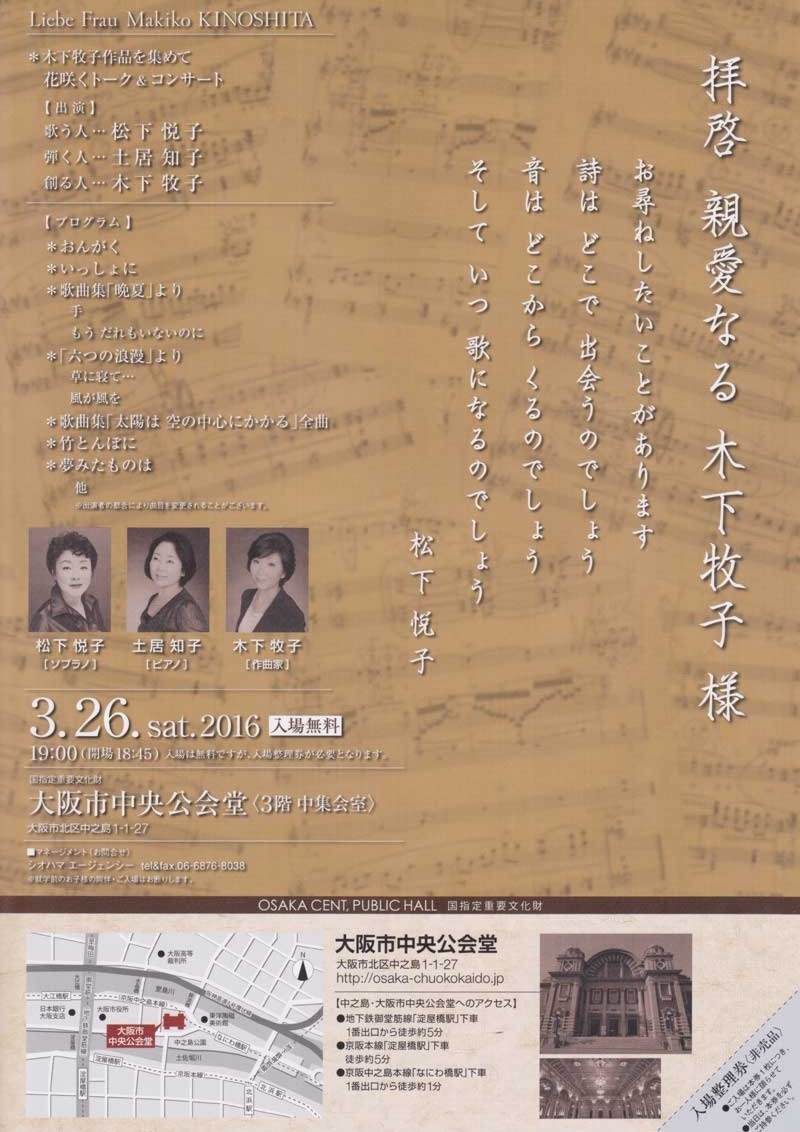 Liebe Frau Makiko KINOSHITA
＊木下牧子作品を集めて
花咲くトーク＆コンサート
【出演】
歌う人…松下 悦子
弾く人…土居 知子
創る人…木下 牧子
【プログラム】
＊おんがく
＊いっしょに
＊歌曲集「晩夏」より
手
もう だれもいないのに
＊「六つの浪漫」より
草に寝て…
風が風を
＊歌曲集「太陽は 空の中心にかかる」全曲
＊竹とんぼに
＊夢みたものは
他
※出演者の都合により曲目を変更されることがございます。
拝啓 親愛なる 木下牧子 様
お尋ねしたいことがあります
詩は どこで 出会うのでしょう
音は どこから くるのでしょう
そして いつ 歌になるのでしょう
松下 悦子
松下 悦子
［ソプラノ］
土居 知子
［ピアノ］
木下 牧子
［作曲家］
3.26.sat.2016 入場無料
19:00（開場18:45）入場は無料ですが、入場整理券が必要となります。
国指定重要文化財
大阪市中央公会堂〈3階 中集会室〉
大阪市北区中之島1-1-27
■マネージメント（お問合せ）
シオハマ エージェンシー tel&fax.06-6876-8038
※就学前のお子様の同伴・ご入場はお断りします。
OSAKA CENT, PUBLIC HALL 国指定重要文化財
大阪市中央公会堂
大阪市北区中之島1-1-27
http://osaka-chuokokaido.jp
【中之島・大阪市中央公会堂へのアクセス】
●地下鉄御堂筋線「淀屋橋駅」下車
1番出口から徒歩約5分
●京阪本線「淀屋橋駅」下車
徒歩約5分
●京阪中之島本線「なにわ橋駅」下車
1番出口から徒歩約1分
N
大阪高等
裁判所
堂島川
大江橋駅
京阪中之島本線
日本銀行
大阪支店
大阪市役所
地下鉄御堂筋線
大阪市
中央公会堂
東洋陶磁
美術館
なにわ橋駅
中之島公園
土佐堀川
淀屋橋駅
淀屋橋駅
京阪本線
北浜駅
北浜駅
入場整理券〈非売品〉
●ご入場は本券1枚につき、
お一人様に限らせて
いただきます。
●当日は、本券を必ず
ご持参ください。